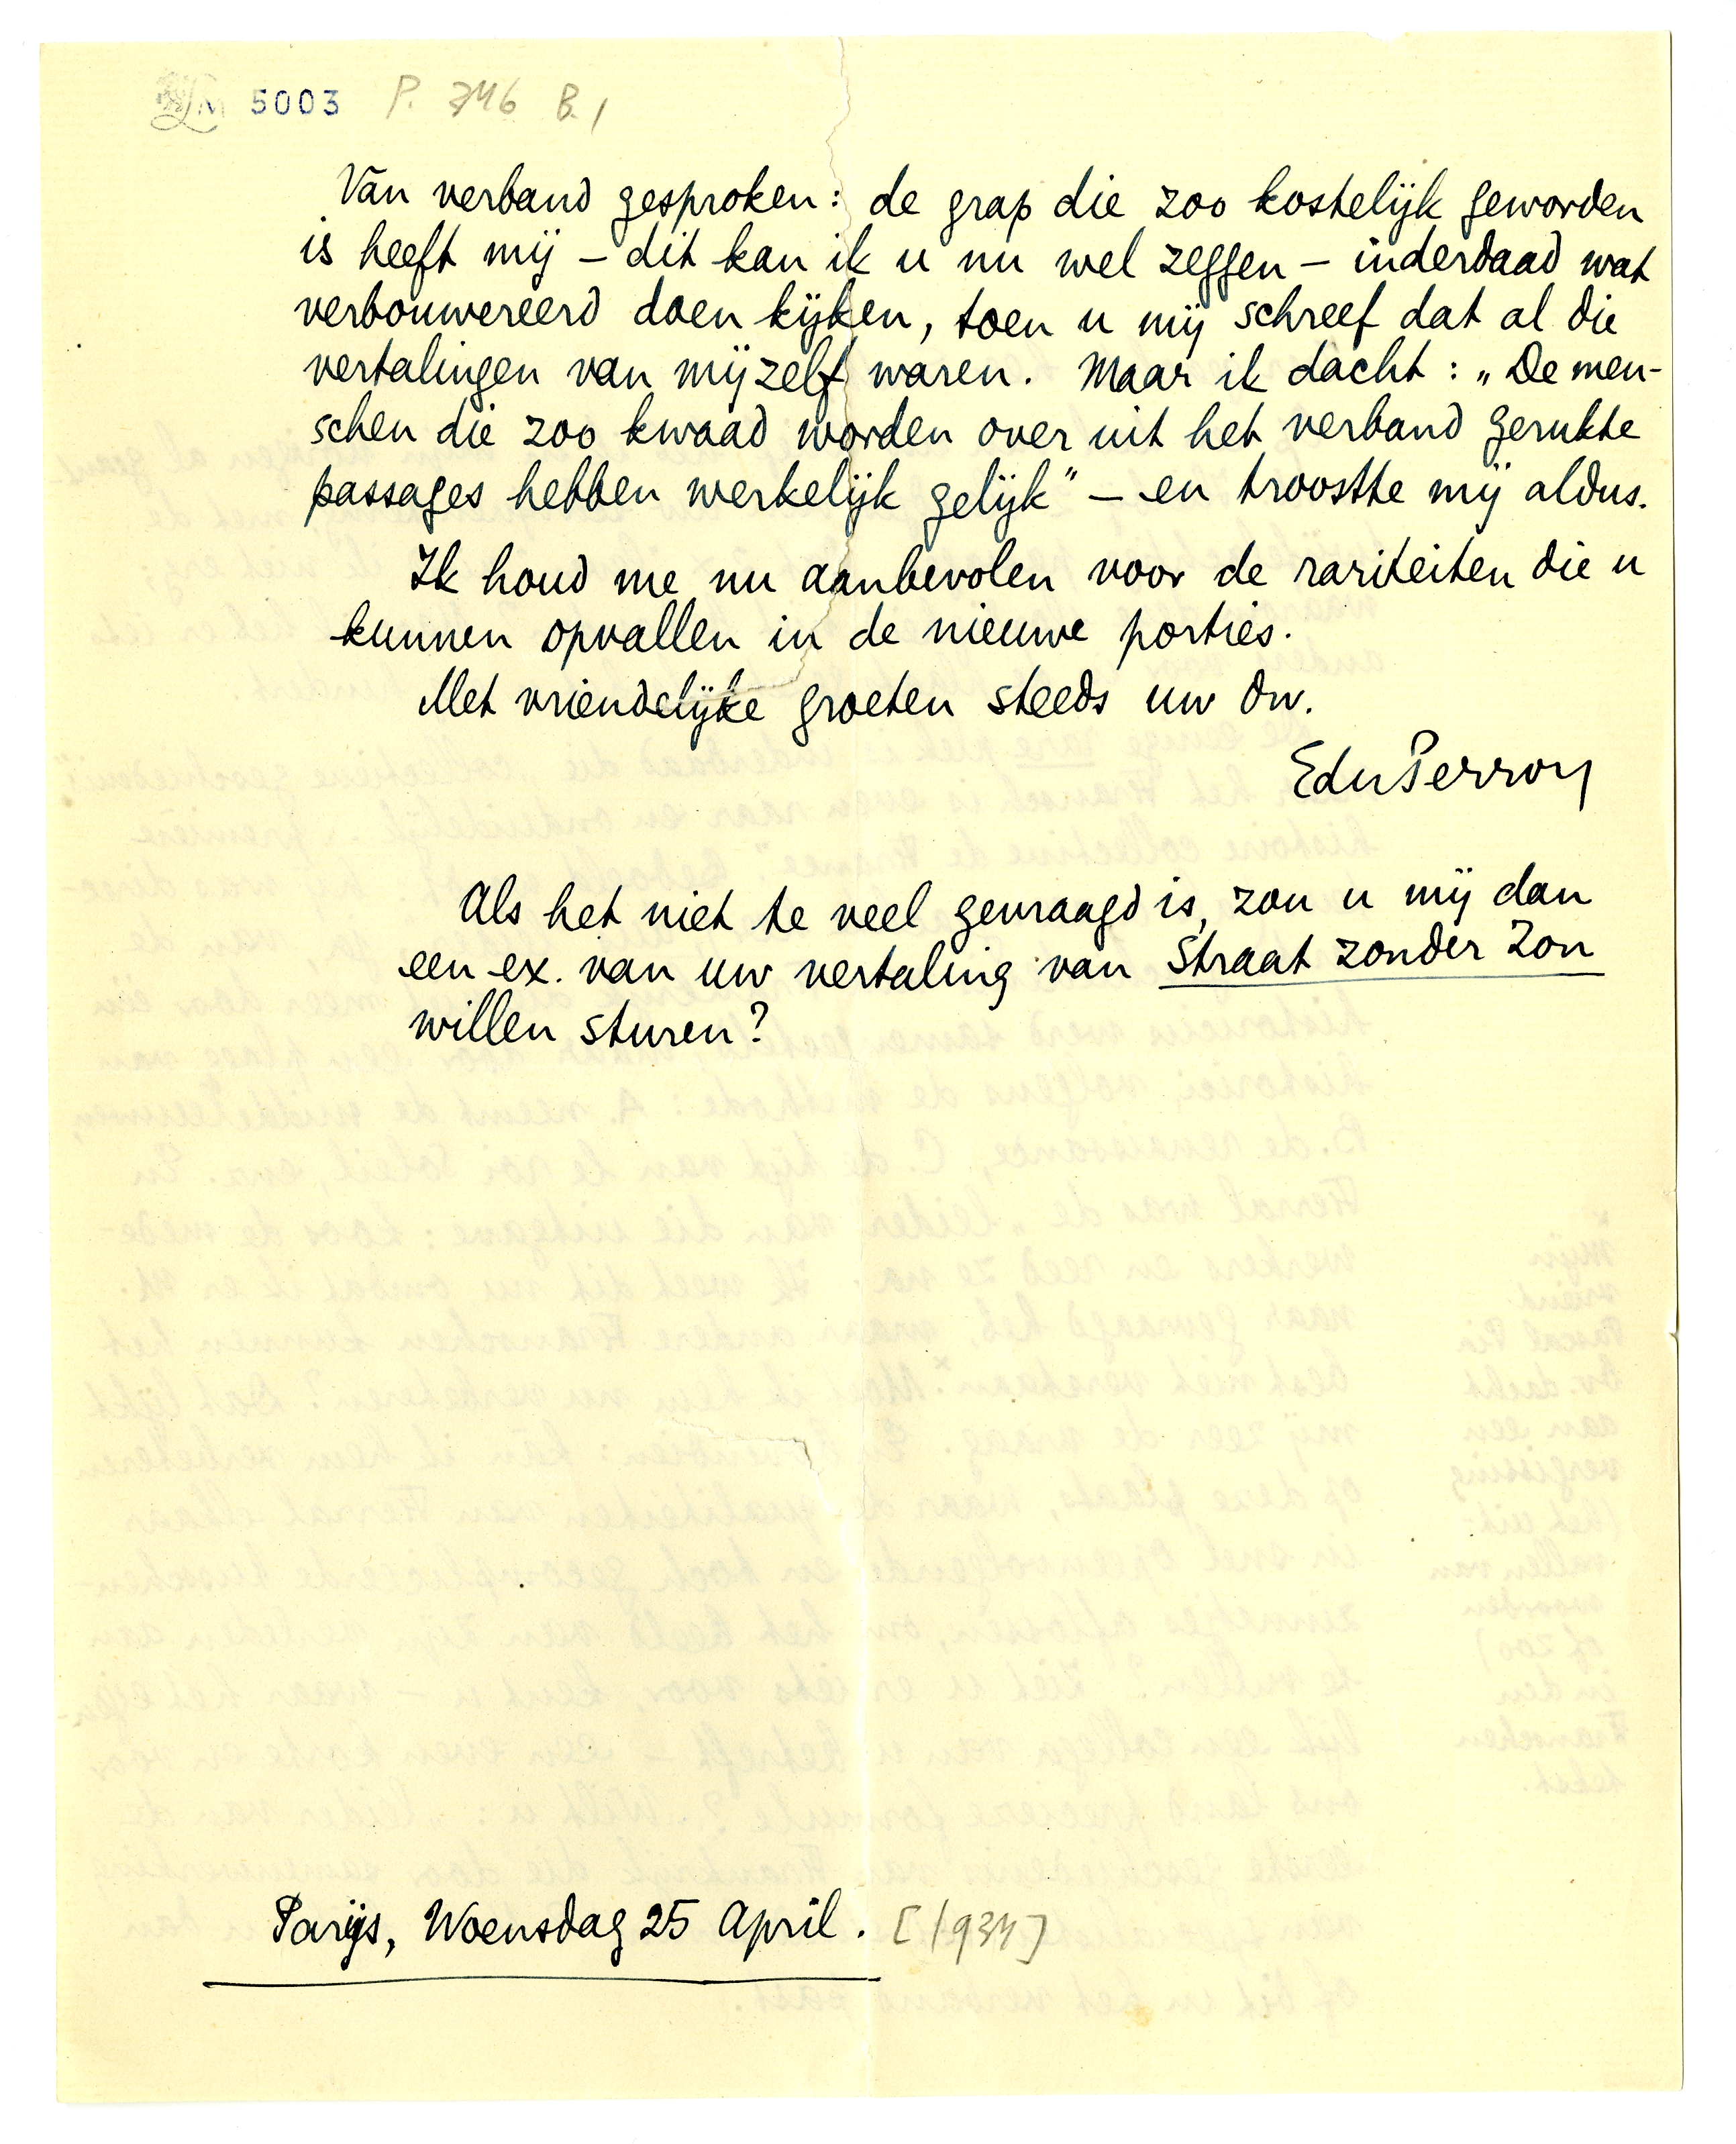 LM 5003 P. 746 B. 1
Van verband gesproken: de grap die zoo kostelijk geworden
is heeft mij – dit kan ik u nu wel zeggen – inderdaad wat
verbouwereerd doen kijken, toen u mij schreef dat al die
vertalingen van mijzelf waren. Maar ik dacht: „De men-
schen die zoo kwaad worden over uit het verband gerukte
passages hebben werkelijk gelijk" – en troostte mij aldus.
Ik houd me nu aanbevolen voor de rariteiten die u
kunnen opvallen in de nieuwe porties.
Met vriendelijke groeten steeds uw dw.
EduPerron
Als het niet te veel gevraagd is, zou u mij dan
een ex. van uw vertaling van Straat zonder Zon
willen sturen?
Parijs, Woensdag 25 April. [1934]